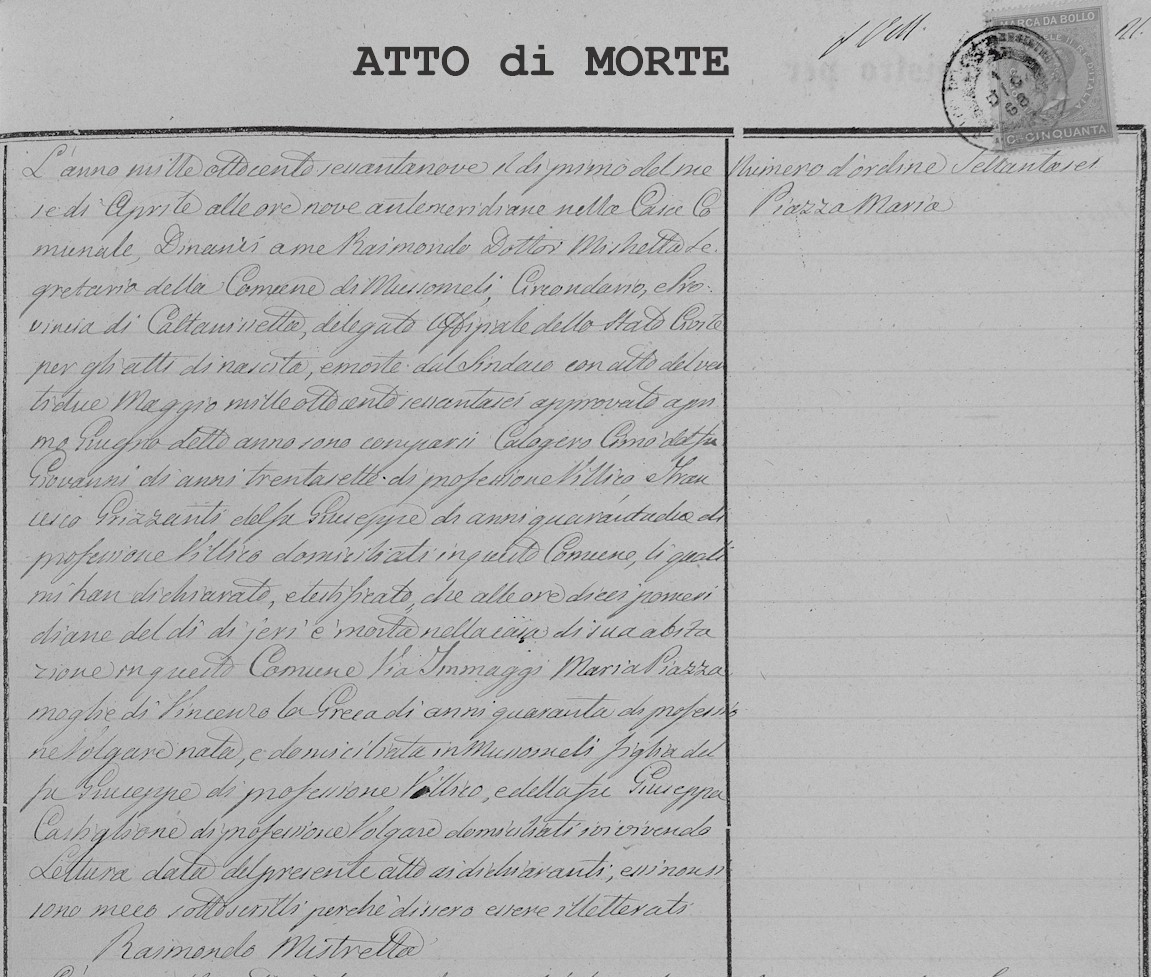 ATTO di MORTE
MARCA DA BOLLO
C. CINQUANTA
21.
L'anno mille ottocento sessantanove il di primo del me
se di Aprile alle ore nove antemeridiane nella Casa Co
munale, Dinanzi a me Raimondo Dottor Mistretta Se-
gretario della Comune di Mussomeli, Circondario, e Pro-
vincia di Caltanissetta, delegato Uffiziale dello Stato Civile
per gli atti di nascita, e morte dal Sindaco con atto del ven
tidue Maggio mille ottocento sessantasei approvato a pri
mo Giugno detto anno sono comparsi Calogero Cimò del fu
Giovanni di anni trentasette di professione Villico Fran
cesco Grizzanti del fu Giuseppe di anni quarantadue di
professione Villico domiciliati in questo Comune, li quali
mi han dichiarato, e testificato, che alle ore dieci pomeri
diane del di di jeri è morta nella casa di sua abita
zione in questo Comune Via Immaggi Maria Piazza
moglie di Vincenzo la Greca di anni quaranta di professio
ne Volgare nata, e domiciliata in Mussomeli figlia del
fu Giuseppe di professione Villico, e della fu Giuseppa
Castiglione di professione Volgare domiciliati ivi vivendo
Lettura data del presente atto ai dichiaranti, essi non si
sono meco sottoscritti perchè dissero essere illetterati
Raimondo Mistretta
Numero d'ordine Settantasei
Piazza Maria